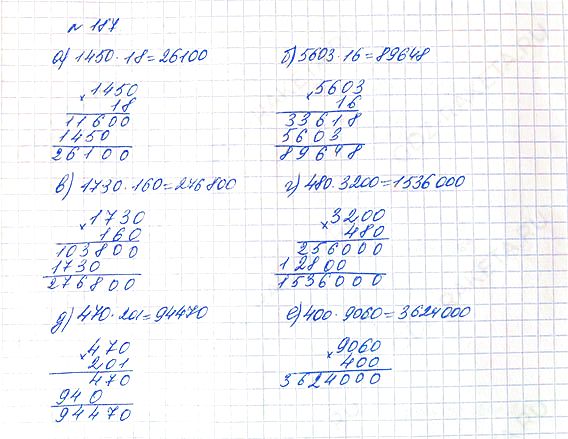 № 187
а) 1450 · 18 = 26100
× 1450
18
11600
1450
26100
б) 5603 · 16 = 89648
× 5603
16
33618
5603
89648
в) 1730 · 160 = 276800
× 1730
160
103800
1730
276800
г) 480 · 3200 = 1536000
× 3200
480
256000
12800
1536000
д) 470 · 201 = 94470
× 470
201
470
940
94470
е) 400 · 9060 = 3624000
× 9060
400
3624000